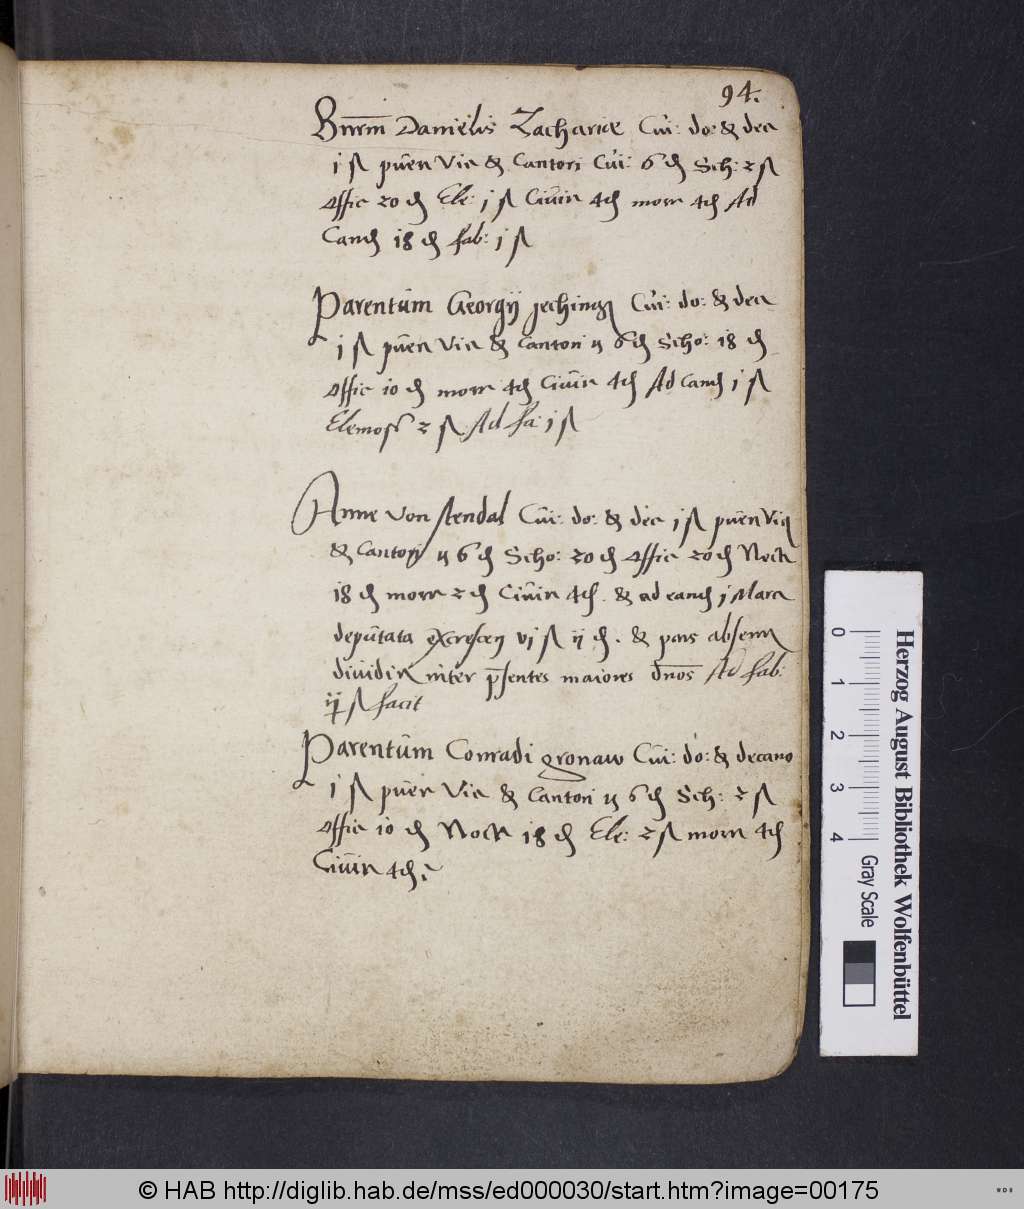 94.
Bnrm Danielis Zacharie Cui: do: & dea
j ß puen Via & Cantori Cui: 6 d Sch: 2 ß
offic 20 d Ele: j ß Ciuir 4d morr 4d Ad
Cand 18 d fab: j ß
Parentum Georgij jeching Cui: do: & dea
j ß puen Via & Cantori y 6 d Scho: 18 d
offic 10 d morr 4d Ciuir 4d Ad Cand j ß
Elemos 2 ß Ad fa: j ß
Anne von stendal Cui: do: & dea j ß puen Via
& Cantori y 6 d Scho: 20 d offic 20 d Noct
18 d morr 2 d Ciuir 4d. & ad eand j Marc
deputata excrescen vj ß ij d. & pars absenn
diuidir inter psentes maiores dnos Ad fab:
ij ß facit
Parentum Conradi gronaw Cui: do: & decano
j ß puen Via & Cantori y 6 d Sch: 2 ß
offic 10 d Noct 18 d Ele: 2 ß morr 4d
Ciuir 4d.
0 1 2 3 4
Gray Scale
Herzog August Bibliothek Wolfenbüttel
© HAB http://diglib.hab.de/mss/ed000030/start.htm?image=00175